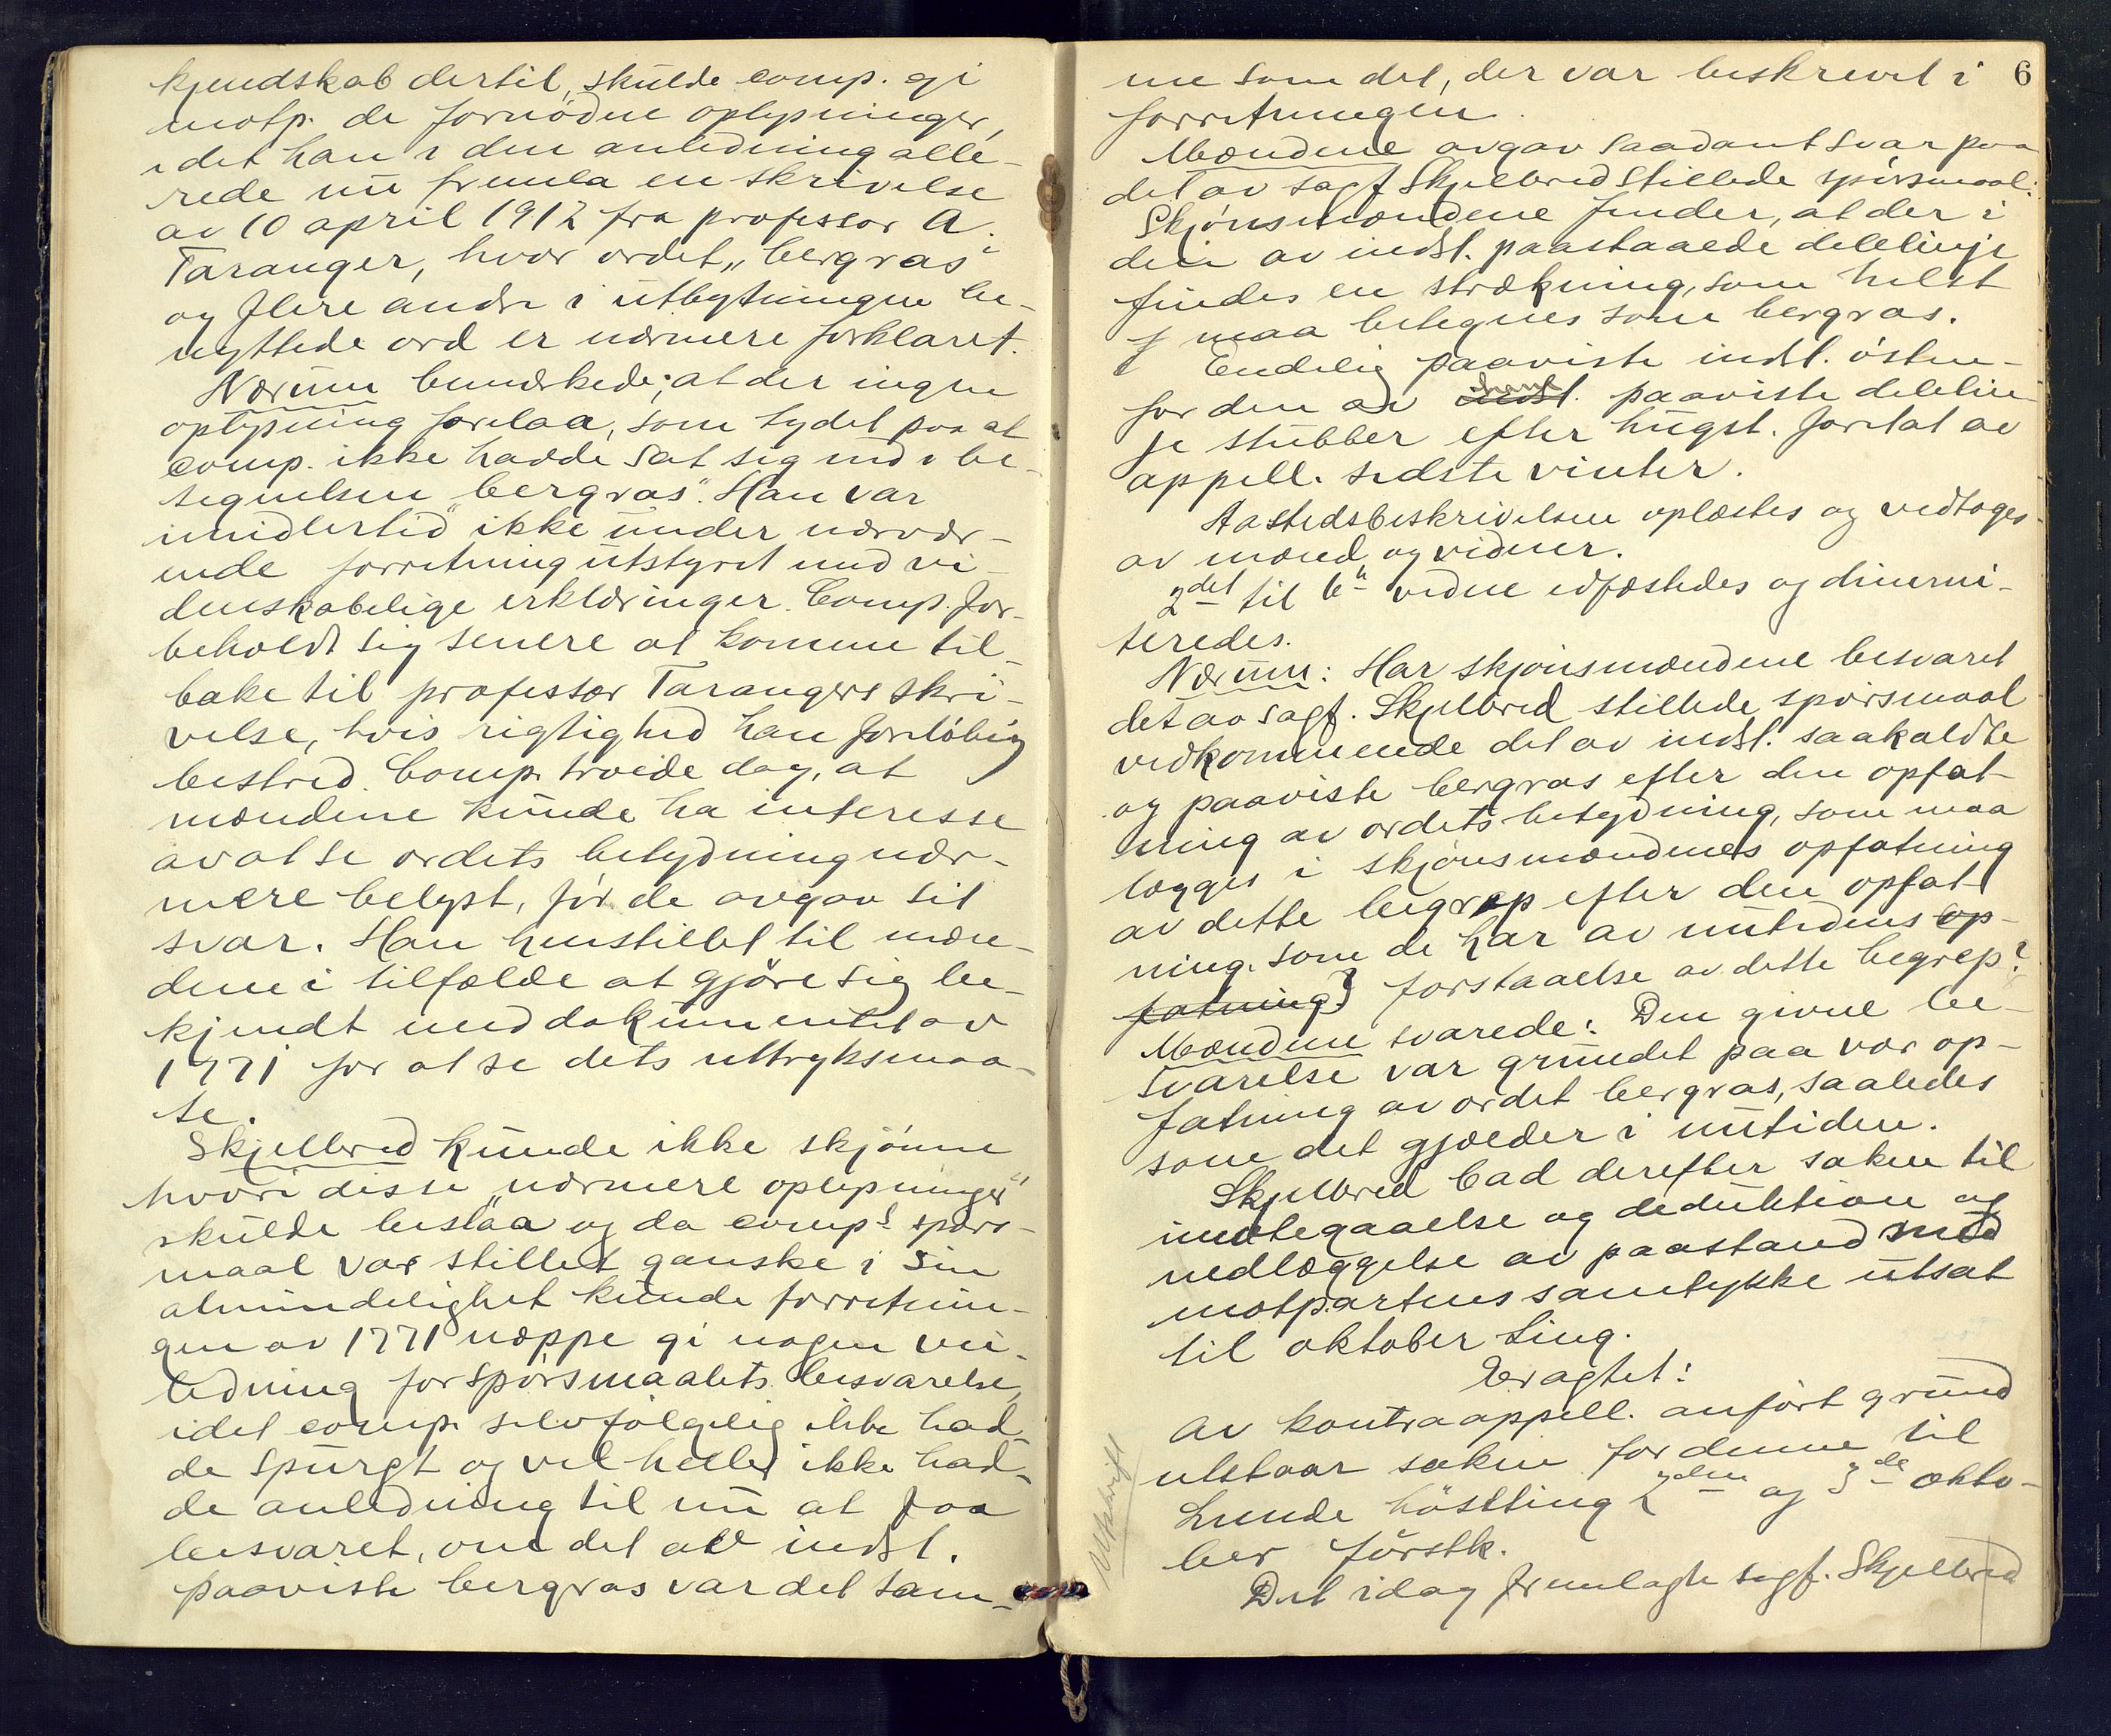 kjendskab dertil, skulde comp. gi
motp. de fornödne oplysninger,
idet han i den anledning alle-
rede nu fremla en skrivelse
av 10 april 1912 fra professor A.
Taranger, hvor ordet „bergras"
og flere andre i utbytningen be-
nyttede ord er nærmere forklaret.
Nærum bemærkede, at der ingen
oplysning forelaa, som tydet paa at
comp. ikke hadde sat sig ind i be-
tegnelsen „bergras". Han var
imidlertid ikke under nærvær-
ende forretning utstyret med vi-
denskabelige erklæringer. Comp. for-
beholdt sig senere at komme til-
bake til professor Tarangers skri-
velse, hvis rigtighed han foreløbig
bestred. Comp. troede dog, at
mændene kunde ha interesse
av at se ordets betydning nær-
mere belyst, før de avgav sit
svar. Han henstillet til mæn-
dene i tilfælde at gjöre sig be-
kjendt med dokumentet av
1771 for at se dets uttryksmaa-
te.
Skjelbred kunde ikke skjönne
hvori disse „nærmere oplysninger"
skulde bestaa og da comps spørs-
maal var stillet ganske i sin
almindelighet kunde forretnin-
gen av 1771 neppe gi nogen vei-
ledning for spörsmaalets besvarelse,
idet comp. selvfölgelig ikke had-
de spurgt og vel heller ikke had-
de anledning til nu at faa
besvaret, om det av indst.
paaviste bergras var det sam-
6
me som det, der var beskrevet i
forretningen.
Mændene avgav saadant svar paa
det av sagf Skjelbred stillede spörsmaal:
Skjönsmændene finder, at der i
den av indst. paastaaede delelinje
findes en strækning, som helst
maa betegnes som bergras.
Endelig paaviste indst. östen-
for den av indst. hans paaviste delelin-
je stubber efter hugst. foretat av
appell. sidste vinter.
Aastedsbeskrivelsen oplæstes og vedtoges
av mænd og vidner.
2det til 6te vidne edfæstedes og dimmi-
teredes.
Nærum: Har skjönsmændene besvaret
det av sagf. Skjelbred stillede spörsmaal
vedkommende det av indst. saakaldte
og paaviste bergras efter den opfat-
ning av ordets betydning, som maa
lægges i skjönsmændenes opfatning
av dette begrep efter den opfat-
ning som de har av nutidens op-
fatning? forstaaelse av dette begrep?
Mændene svarede: Den givne be-
svarelse var grundet paa vor op-
fatning av ordet bergras, saaledes
som det gjælder i nutiden.
Skjelbred bad derefter saken til
imøtegaaelse og deduktion og
nedlæggelse av paastand med
motpartens samtykke utsat
til oktober ting.
Eragtet:
Av kontraappell. anfört grund
utstaar saken for denne til
Lunde höstting 2den og 3de okto-
ber förstk.
Utskrift
Det idag fremlagte sagf. Skjelbred